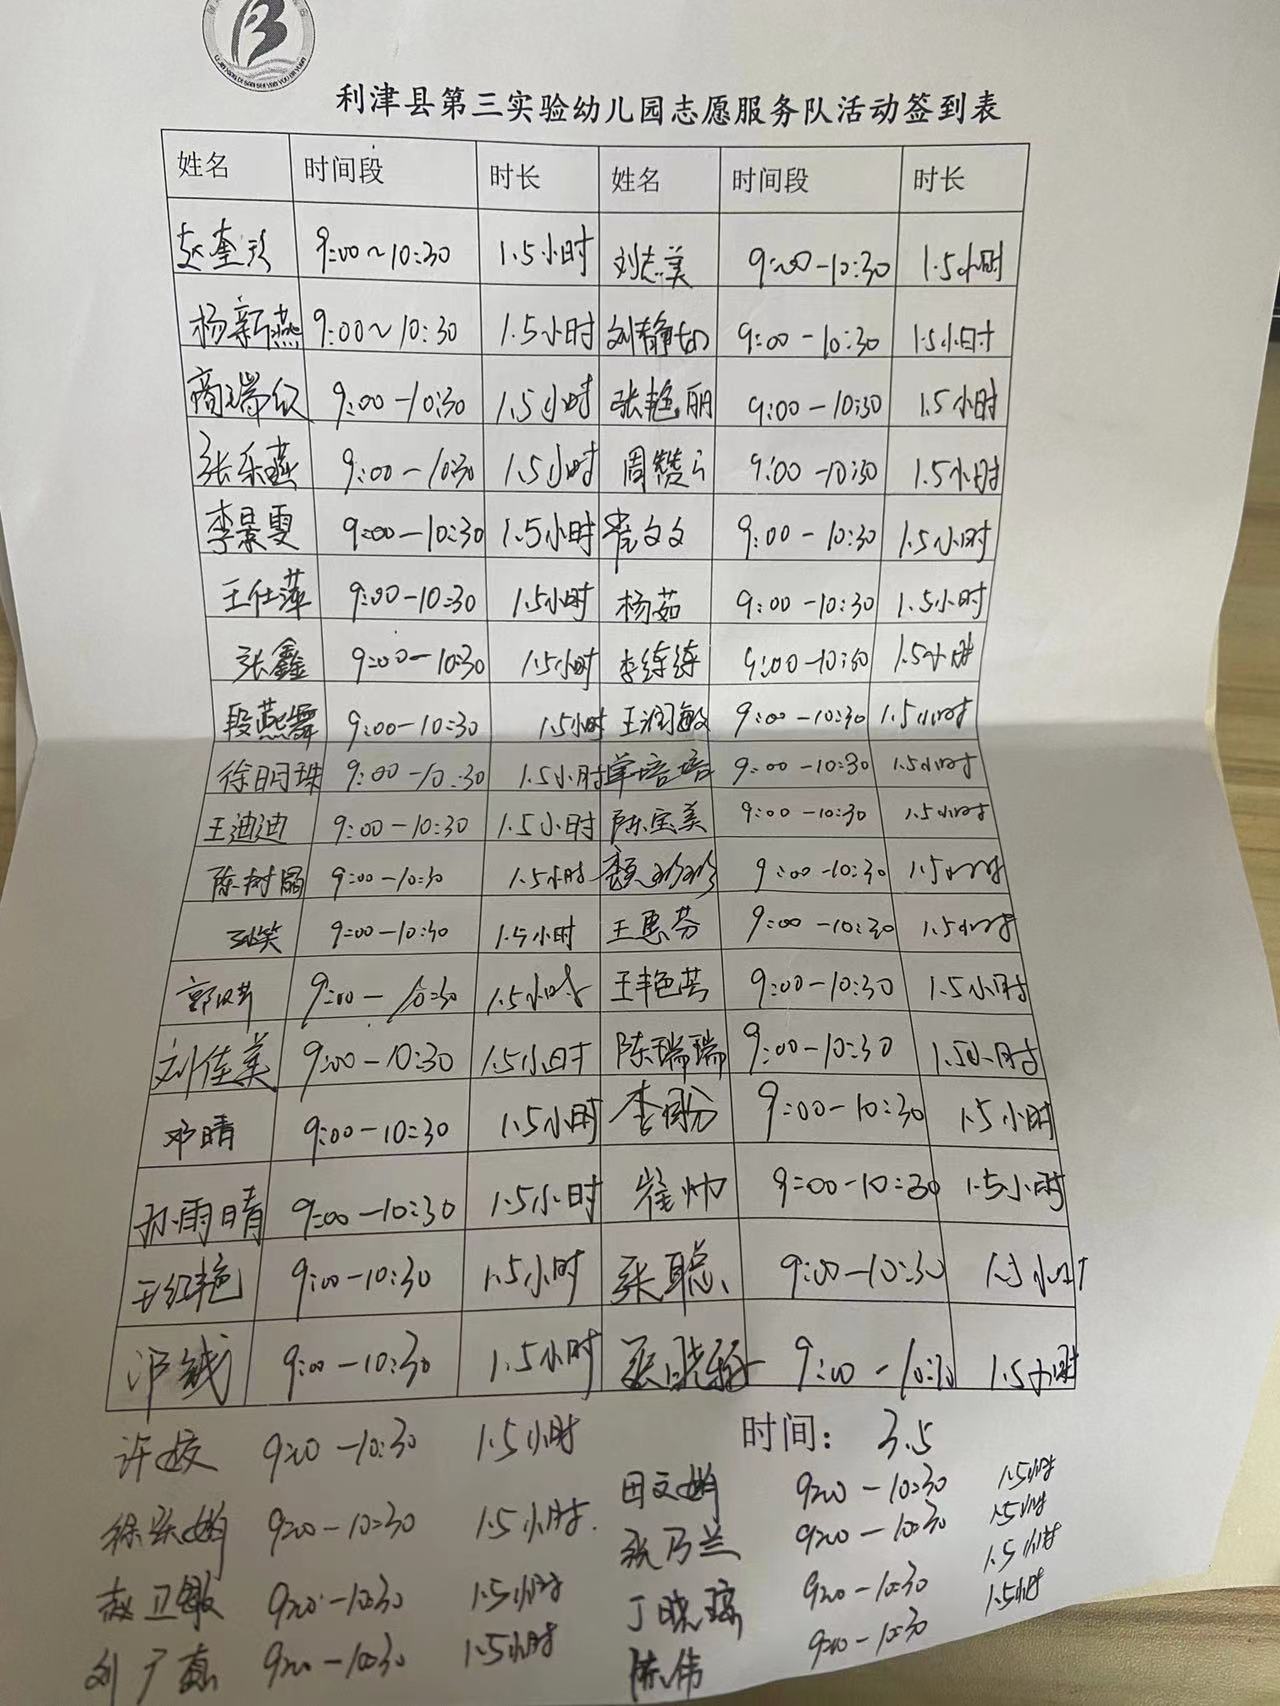 利津县第三实验幼儿园志愿服务队活动签到表
姓名 时间段 时长 姓名 时间段 时长
赵奎 9:00～10:30 1.5小时 刘志美 9:00-10:30 1.5小时
杨新燕 9:00～10:30 1.5小时 刘静如 9:00-10:30 1.5小时
商瑞红 9:00-10:30 1.5小时 张艳丽 9:00-10:30 1.5小时
张乐燕 9:00-10:30 1.5小时 周赞 9:00-10:30 1.5小时
李景雯 9:00-10:30 1.5小时 文文 9:00-10:30 1.5小时
王仕萍 9:00-10:30 1.5小时 杨茹 9:00-10:30 1.5小时
张鑫 9:00-10:30 1.5小时 李练练 9:00-10:30 1.5小时
段燕舞 9:00-10:30 1.5小时 王润敏 9:00-10:30 1.5小时
徐明珠 9:00-10:30 1.5小时 单培培 9:00-10:30 1.5小时
王迪迪 9:00-10:30 1.5小时 陈宝美 9:00-10:30 1.5小时
陈树晶 9:00-10:30 1.5小时 珍珍 9:00-10:30 1.5小时
笑 9:00-10:30 1.5小时 王惠芬 9:00-10:30 1.5小时
郭 9:00-10:30 1.5小时 王艳芸 9:00-10:30 1.5小时
刘佳美 9:00-10:30 1.5小时 陈瑞瑞 9:00-10:30 1.5小时
邓晴 9:00-10:30 1.5小时 李 9:00-10:30 1.5小时
孙雨晴 9:00-10:30 1.5小时 崔帅 9:00-10:30 1.5小时
王红艳 9:00-10:30 1.5小时 张聪 9:00-10:30 1.5小时
9:00-10:30 1.5小时 张晓 9:00-10:30 1.5小时
许姣 9:00-10:30 1.5小时 时间： 3.5
徐跃娟 9:00-10:30 1.5小时. 田文娟 9:00-10:30 1.5小时
赵卫敏 9:00-10:30 1.5小时 张乃兰 9:00-10:30 1.5小时
刘广嘉 9:00-10:30 1.5小时 丁晓琼 9:00-10:30 1.5小时
陈伟 9:00-10:30 1.5小时